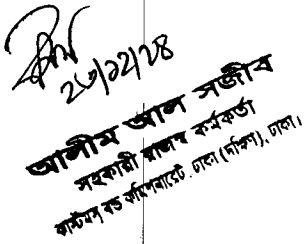 ২৬/১২/২৪
আলীম আল সজীব
সহকারী রাজস্ব কর্মকর্তা
কাস্টমস বন্ড কমিশনারেট, ঢাকা (দক্ষিণ), ঢাকা।